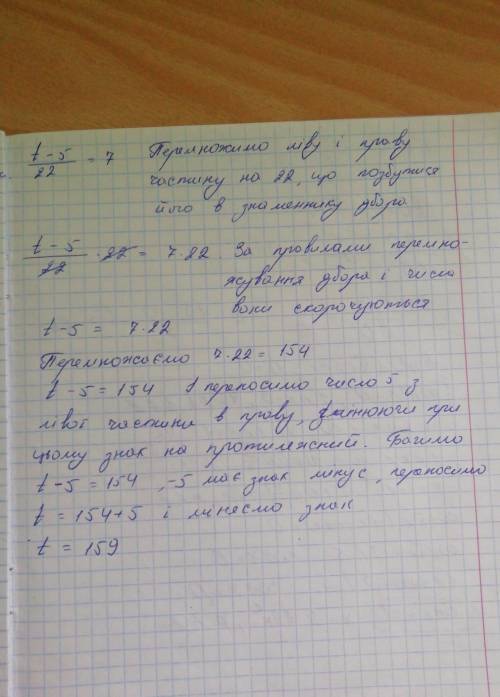 t-5/22 = 7 Перемножимо ліву і праву
частину на 22, що позбутися
його в знаменнику дбора
t-5/22 · 22 = 7·22 За правилами перемно-
жування дбора і числа
вони скорочуються
t-5 = 7·22
Перемножаємо 7·22 = 154
t-5 = 154 переносимо число 5 з
лівої частини в праву, змінюючи при
цьому знак на протилежний. Бачимо
t-5 = 154, -5 має знак мінус, переносимо
t = 154+5 і міняємо знак
t = 159